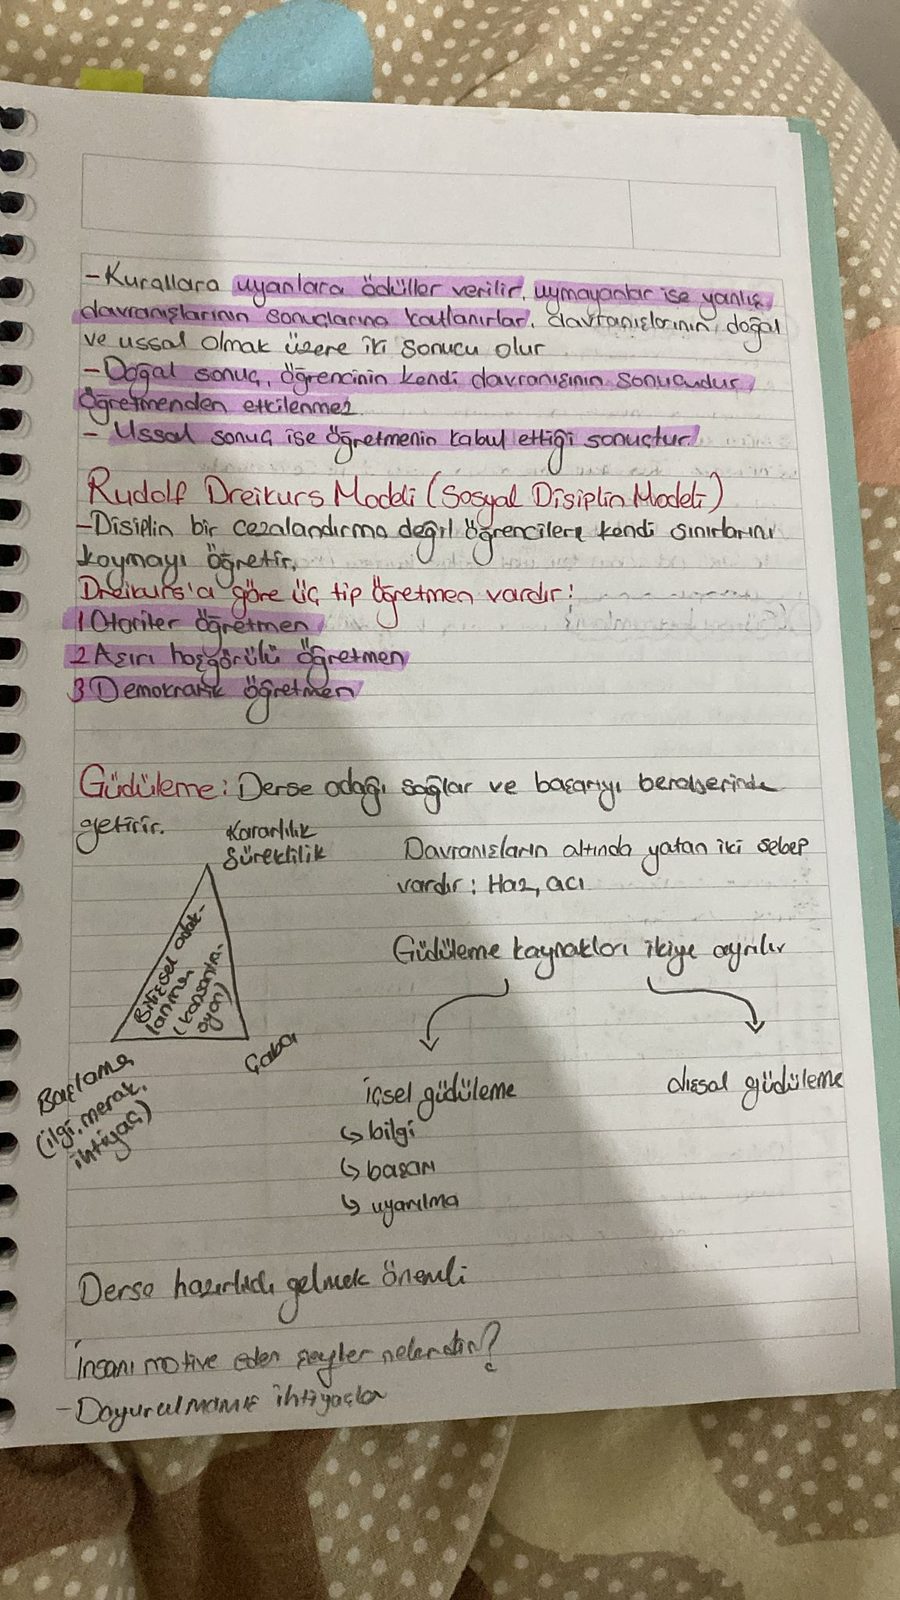 - Kurallara uyanlara ödüller verilir, uymayanlar ise yanlış
davranışlarının sonuçlarına katlanırlar. davranışlarının doğal
ve ussal olmak üzere iki sonucu olur
- Doğal sonuç, öğrencinin kendi davranışının sonucudur,
Öğretmenden etkilenmez
- Ussal sonuç ise öğretmenin kabul ettiği sonuçtur.
Rudolf Dreikurs Modeli (Sosyal Disiplin Modeli)
- Disiplin bir cezalandırma değil öğrencilere kendi sınırlarını
koymayı öğretir.
Dreikurs'a göre üç tip öğretmen vardır:
1 Otoriter öğretmen
2 Aşırı hoşgörülü öğretmen
3 Demokratik öğretmen
Güdüleme: Derse odağı sağlar ve başarıyı beraberinde
getirir.
Kararlılık
Süreklilik
Bilişsel odak-
lanma
(konsantra-
syon)
Başlama
(ilgi, merak,
ihtiyaç)
Çaba
Davranışların altında yatan iki sebep
vardır: Haz, acı
Güdüleme kaynakları ikiye ayrılır
içsel güdüleme
bilgi
başarı
uyarılma
dışsal güdüleme
Derse hazırlıklı gelmek önemli
İnsanı motive eden şeyler nelerdir?
- Doyurulmamış ihtiyaçlar